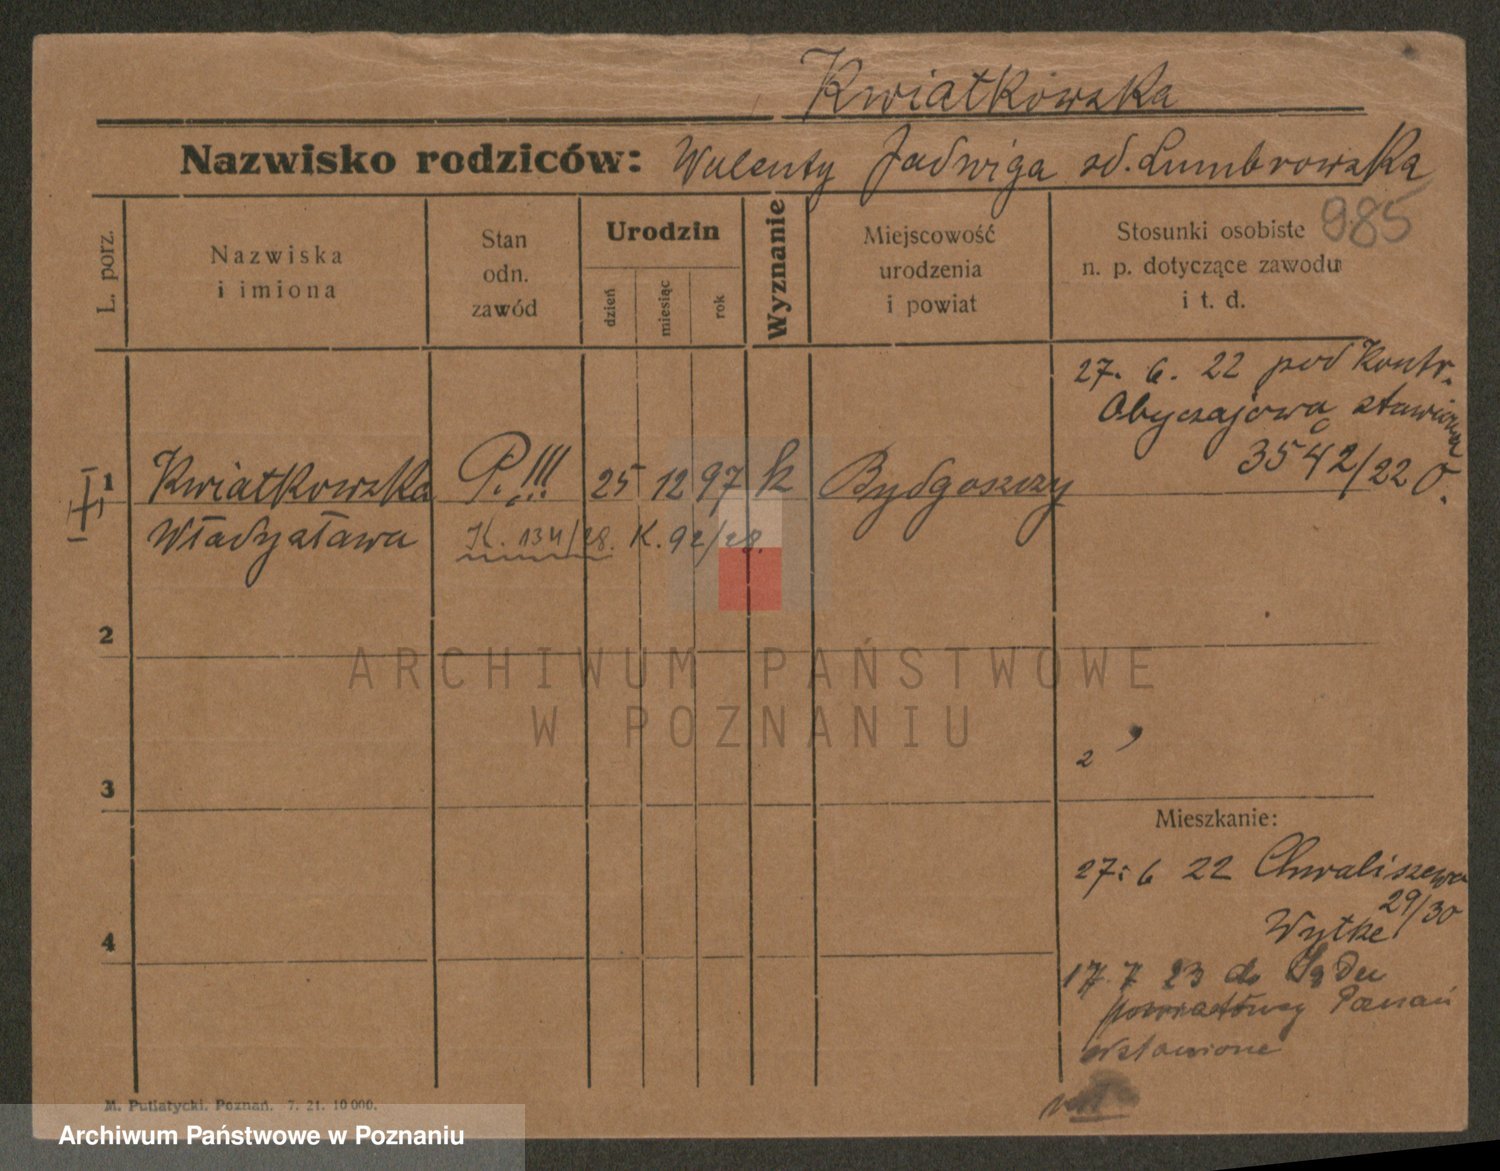 Kwiatkowska
Nazwisko rodziców: Walenty Jadwiga sd. Lumbrowska
985
L. porz.
Nazwiska
i imiona
Stan
odn.
zawód
Urodzin
dzień
miesiąc
rok
Wyznanie
Miejscowość
urodzenia
i powiat
Stosunki osobiste
n. p. dotyczące zawodu
i t. d.
27. 6. 22 pod Kontr.
Obyczajową stawiona
3542/22 O.
1 Kwiatkowska P.!!! 25 12 97 k Bydgoszczy
Władysława K. 134/28. K. 92/28.
2
3
2
Mieszkanie:
27. 6 22 Chwaliszewo
29/30
Wytke
4
17. 7 23 do Sądu
powiatowy Poznań
wstawione
M. Putiatycki. Poznań. 7. 21. 10 000.
ARCHIWUM PAŃSTWOWE
W POZNANIU
Archiwum Państwowe w Poznaniu